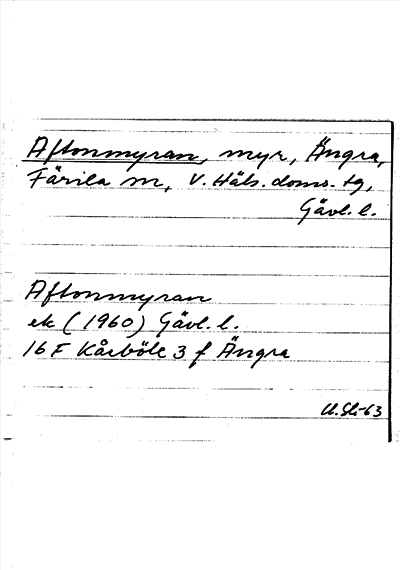 Aftonmyran, myr, Ängra,
Färila sn, V. Häls. doms. tg,
Gävl. l.
Aftonmyran
ek (1960) Gävl. l.
16 F Kårböle 3 f Ängra
-63